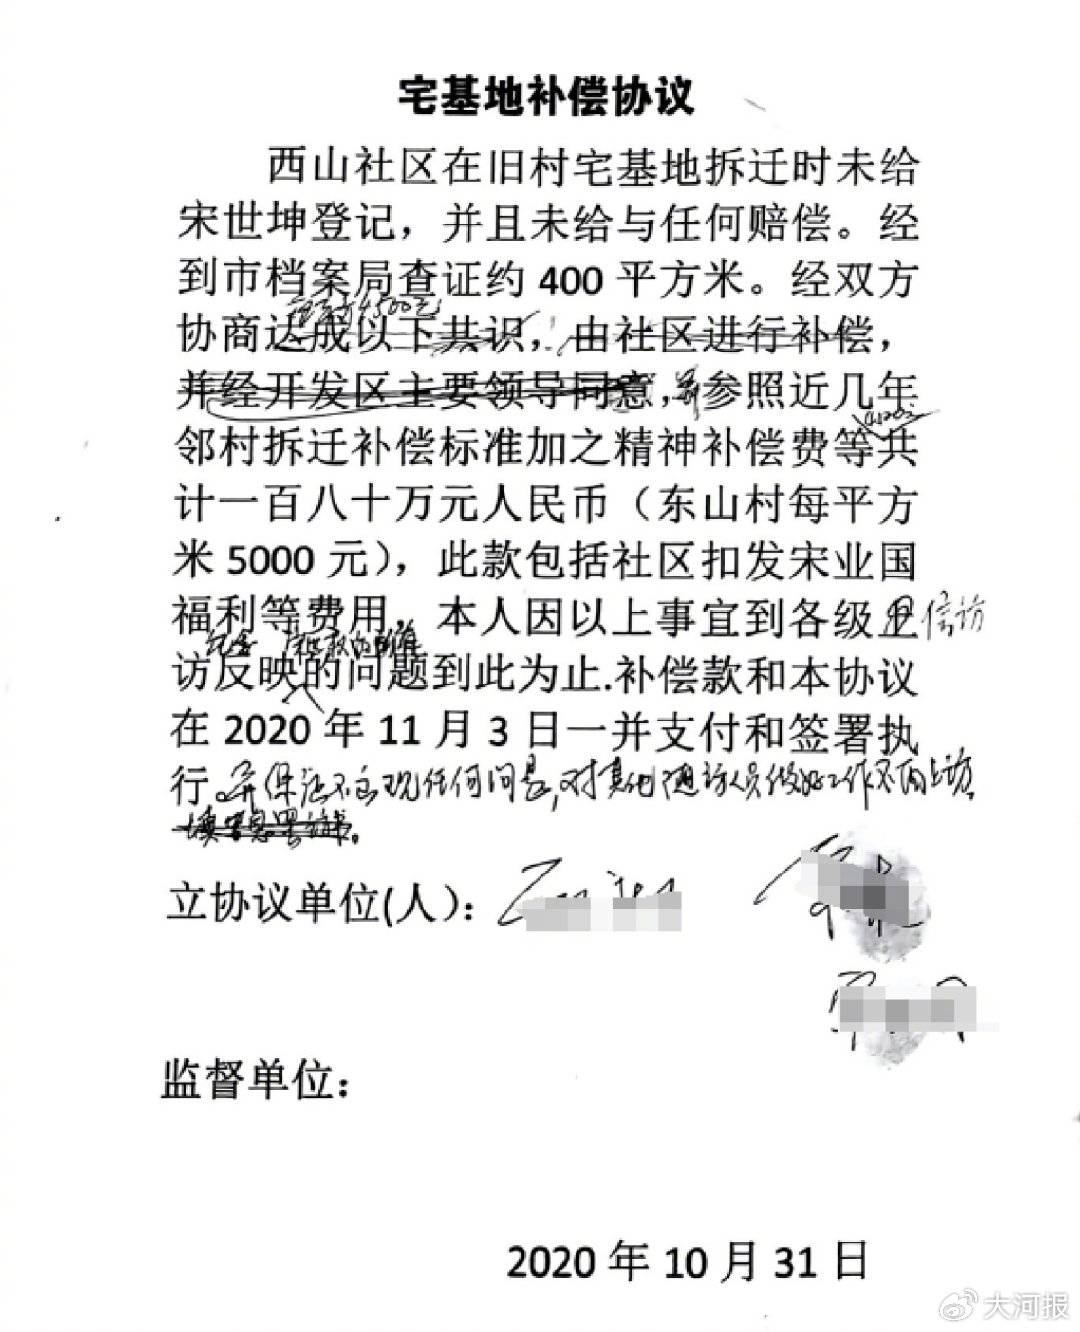 宅基地补偿协议
西山社区在旧村宅基地拆迁时未给
宋世坤登记，并且未给与任何赔偿。经
到市档案局查证约 400 平方米。经双方
协商达成以下共识，由社区进行补偿，
并经开发区主要领导同意，参照近几年
邻村拆迁补偿标准加之精神补偿费等共
计一百八十万元人民币（东山村每平方
米 5000 元），此款包括社区扣发宋业国
福利等费用。本人因以上事宜到各级 信访
访反映的问题到此为止.补偿款和本协议
在 2020 年 11 月 3 日一并支付和签署执
行。并保证不出现任何问题，对其他 访人员做好工作不再上访
立协议单位(人)：
监督单位：
2020 年 10 月 31 日
大河报